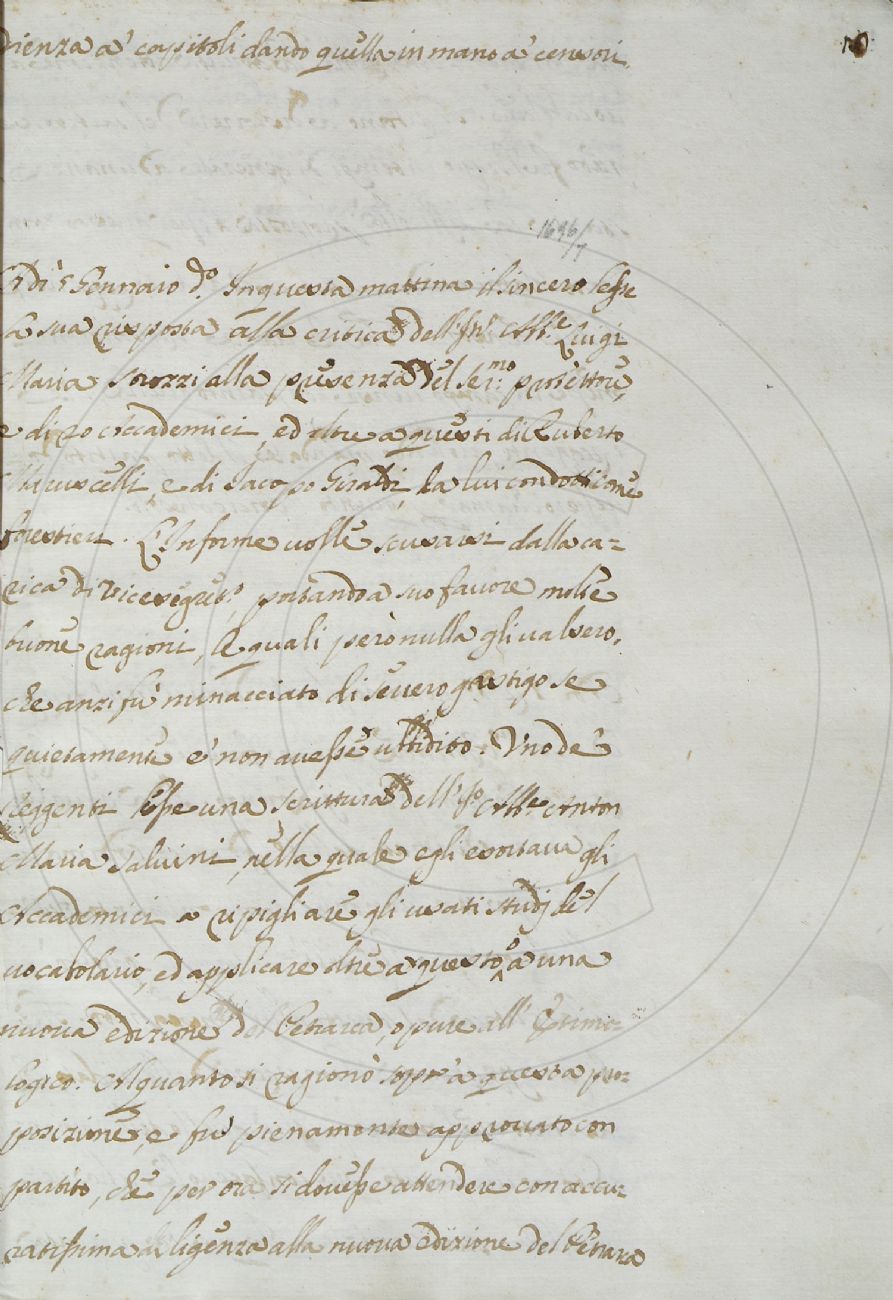 dienza a' capitoli dando quella in mano a' censori.
1696/7
dì 5 Gennaio d.º In questa mattina il sincero lesse
la sua risposta alla critica dell' Abb.e Luigi
Maria Strozzi alla presenza del Ser.mo protettore,
e di 20 Accademici, ed oltre a questi di Ruberto
e di Jacopo Giraldi, da lui condotti come
forestieri. L'Informe volle scusarsi dalla ca-
rica di vicesegret.º, portando a suo favore molte
buone ragioni, le quali però nulla gli valsero,
che anzi fù minacciato di severo gastigo se
quietamente e' non avesse ubbidito. Uno de'
leggenti lesse una scrittura dell' Abb.e Anton
Maria Salvini, nella quale egli esortava gli
Accademici a ripigliare gli usati studj del
vocabolario, ed applicare oltre a questo o a una
nuova edizione del Petrarca, o pure all' Etimo-
logico. Alquanto si ragionò sopr' a questa pro-
posizione, e fù pienamente approvato con
partito, che per ora si dovesse attendere con accu-
ratissima diligenza alla nuova edizione del Petrarca